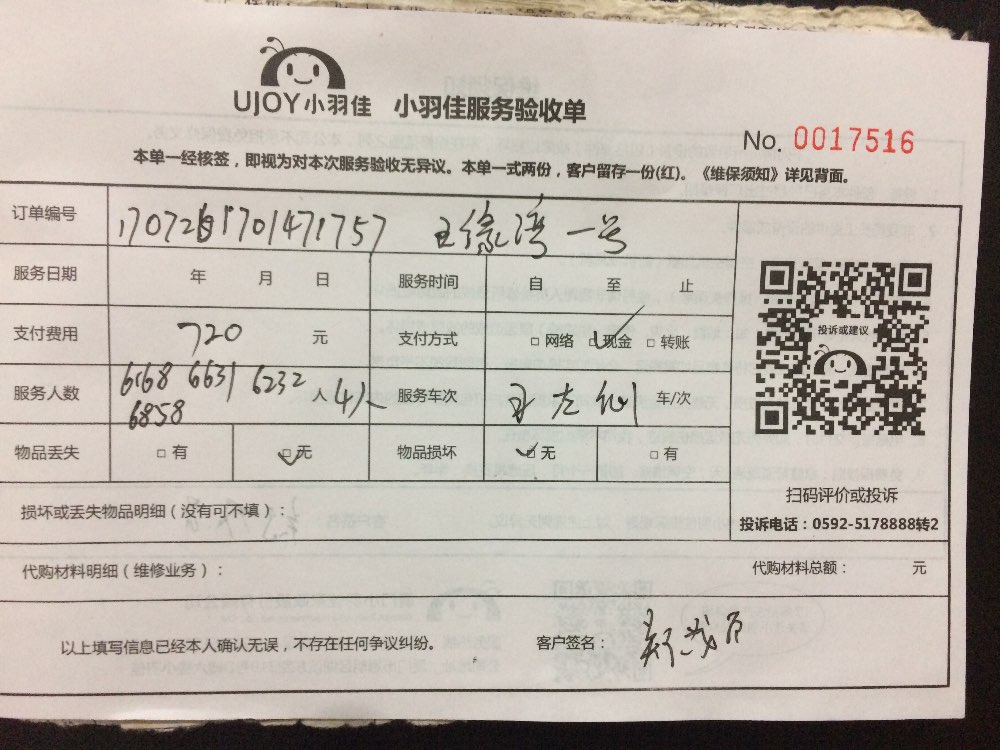 UJOY小羽佳 小羽佳服务验收单
No. 0017516
本单一经核签，即视为对本次服务验收无异议。本单一式两份，客户留存一份(红)。《维保须知》详见背面。
订单编号 一号
服务日期 年 月 日 服务时间 自 至 止
支付费用 720 元 支付方式 □ 网络 □ 现金 □ 转账
投诉或建议
服务人数 6168 6631 6232 6858 4人 服务车次 车/次
物品丢失 □ 有 □ 无 物品损坏 □ 无 □ 有
扫码评价或投诉
损坏或丢失物品明细（没有可不填）：
投诉电话：0592-5178888转2
代购材料明细（维修业务）： 代购材料总额： 元
以上填写信息已经本人确认无误，不存在任何争议纠纷。 客户签名：